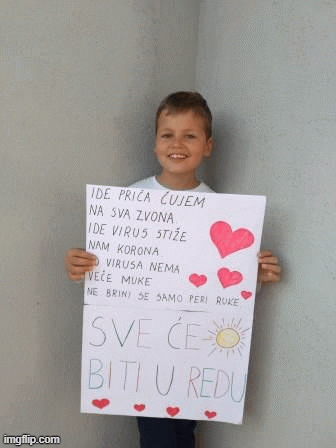 IDE PRIČA ČUJEM
NA SVA ZVONA
IDE VIRUS STIŽE
NAM KORONA
VIRUSA NEMA
VEĆE MUKE
NE BRINI SE SAMO PERI RUKE
SVE ĆE
BITI U REDU
imgflip.com